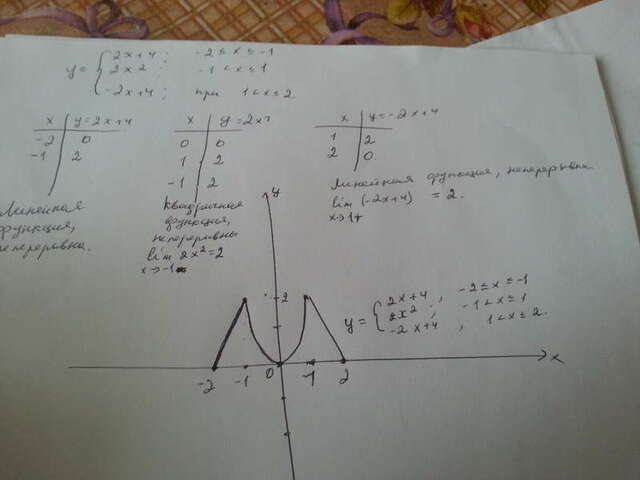 y = { 2x+4 ; -2 ≤ x ≤ -1
2x² ; -1 < x ≤ 1
-2x+4 ; при 1 < x ≤ 2
x | y = 2x+4
-2 | 0
-1 | 2
Линейная
функция,
непрерывна.
x | y = 2x²
0 | 0
1 | 2
-1 | 2
Квадратичная
функция,
непрерывна
lim 2x² = 2
x→-1
x | y = -2x+4
1 | 2
2 | 0
Линейная функция, непрерывна
lim (-2x+4) = 2.
x→1+
y
2
-2 -1 0 1 2 x
y = { 2x+4 , -2 ≤ x ≤ -1
2x² , -1 < x ≤ 1
-2x+4 , 1 < x ≤ 2.